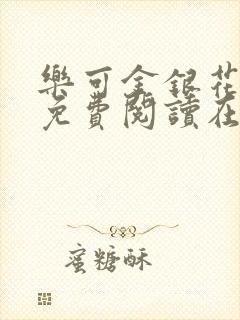 樂可金銀花
免費閱讀在
蜜糖酥